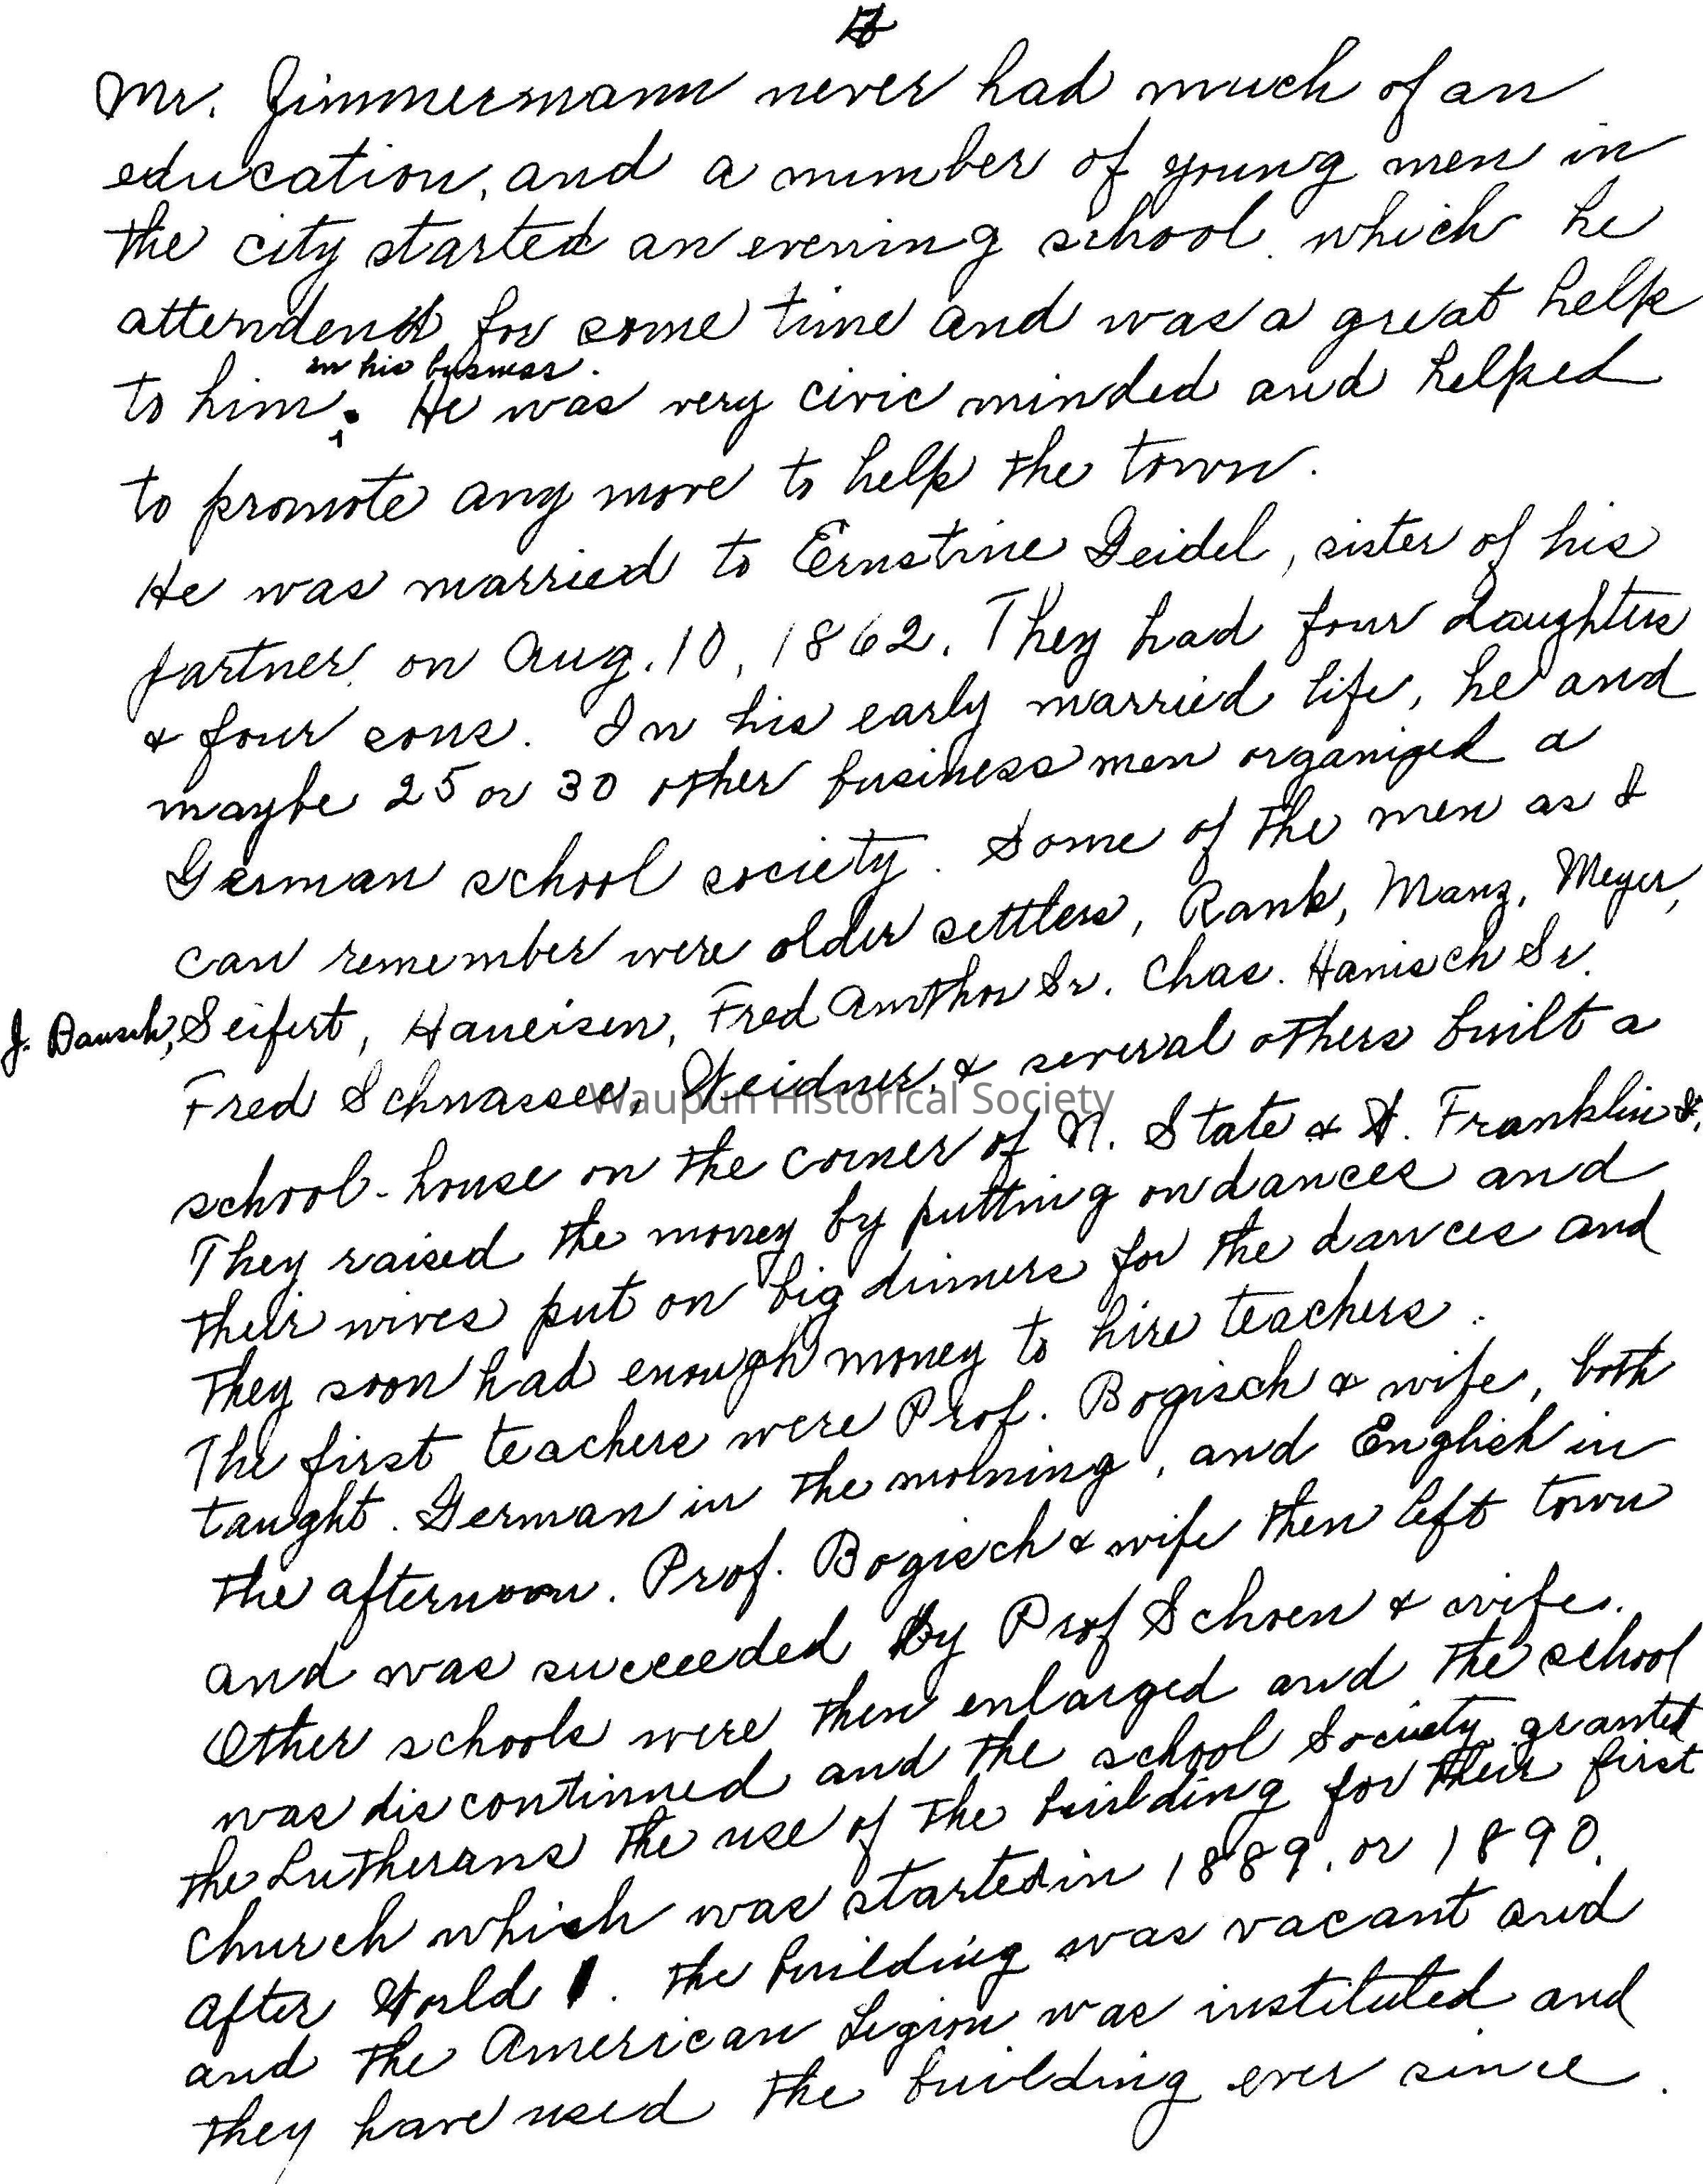 Mr. Zimmermann never had much of an
education, and a number of young men in
the city started an evening school which he
attended for some time and was a great help
in his business.
to him. He was very civic minded and helped
to promote any move to help the town.
He was married to Ernstine Geidel, sister of his
partner on Aug. 10, 1862. They had four daughters
& four sons. In his early married life, he and
maybe 25 or 30 other business men organized a
German school society. Some of the men as I
can remember were older settlers, Rank, Manz, Meyer,
J. Bausch, Seifert, Haneisen, Fred Amthor Sr. Chas. Hanisch Sr.
Fred Schnassee, Weidner, & several others built a
Waupun Historical Society
school-house on the corner of N. State & Franklin St.
They raised the money by putting on dances and
their wives put on big dinners for the dances and
they soon had enough money to hire teachers.
The first teachers were Prof. Bogisch & wife, both
taught. German in the morning, and English in
the afternoon. Prof. Bogisch & wife then left town
and was succeeded by Prof Schoen & wife.
Other schools were then enlarged and the school
was discontinued and the school Society granted
the Lutherans the use of the building for their first
church which was started in 1889, or 1890.
After World 1. the building was vacant and
and the American Legion was instituted and
they have used the building ever since.